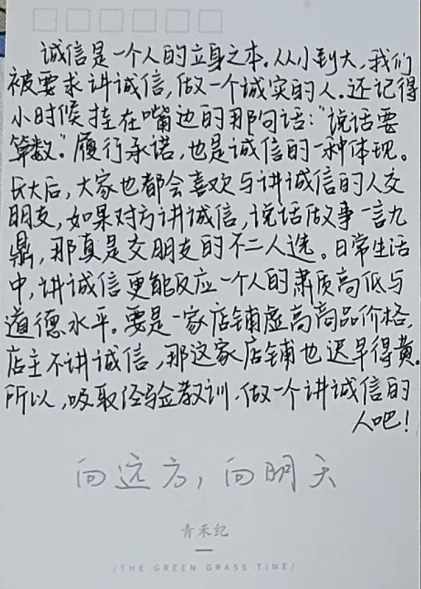 诚信是一个人的立身之本,从小到大,我们
被要求讲诚信,做一个诚实的人.还记得
小时候挂在嘴边的那句话:“说话要
算数.”履行承诺,也是诚信的一种体现。
长大后,大家也都会喜欢与讲诚信的人交
朋友,如果对方讲诚信,说话做事一言九
鼎,那真是交朋友的不二人选。日常生活
中,讲诚信更能反应一个人的素质高低与
道德水平。要是一家店铺虚高商品价格,
店主不讲诚信,那这家店铺也迟早得黄.
所以,吸取经验教训,做一个讲诚信的
人吧!
向远方,向明天
青禾纪
/THE GREEN GRASS TIME/